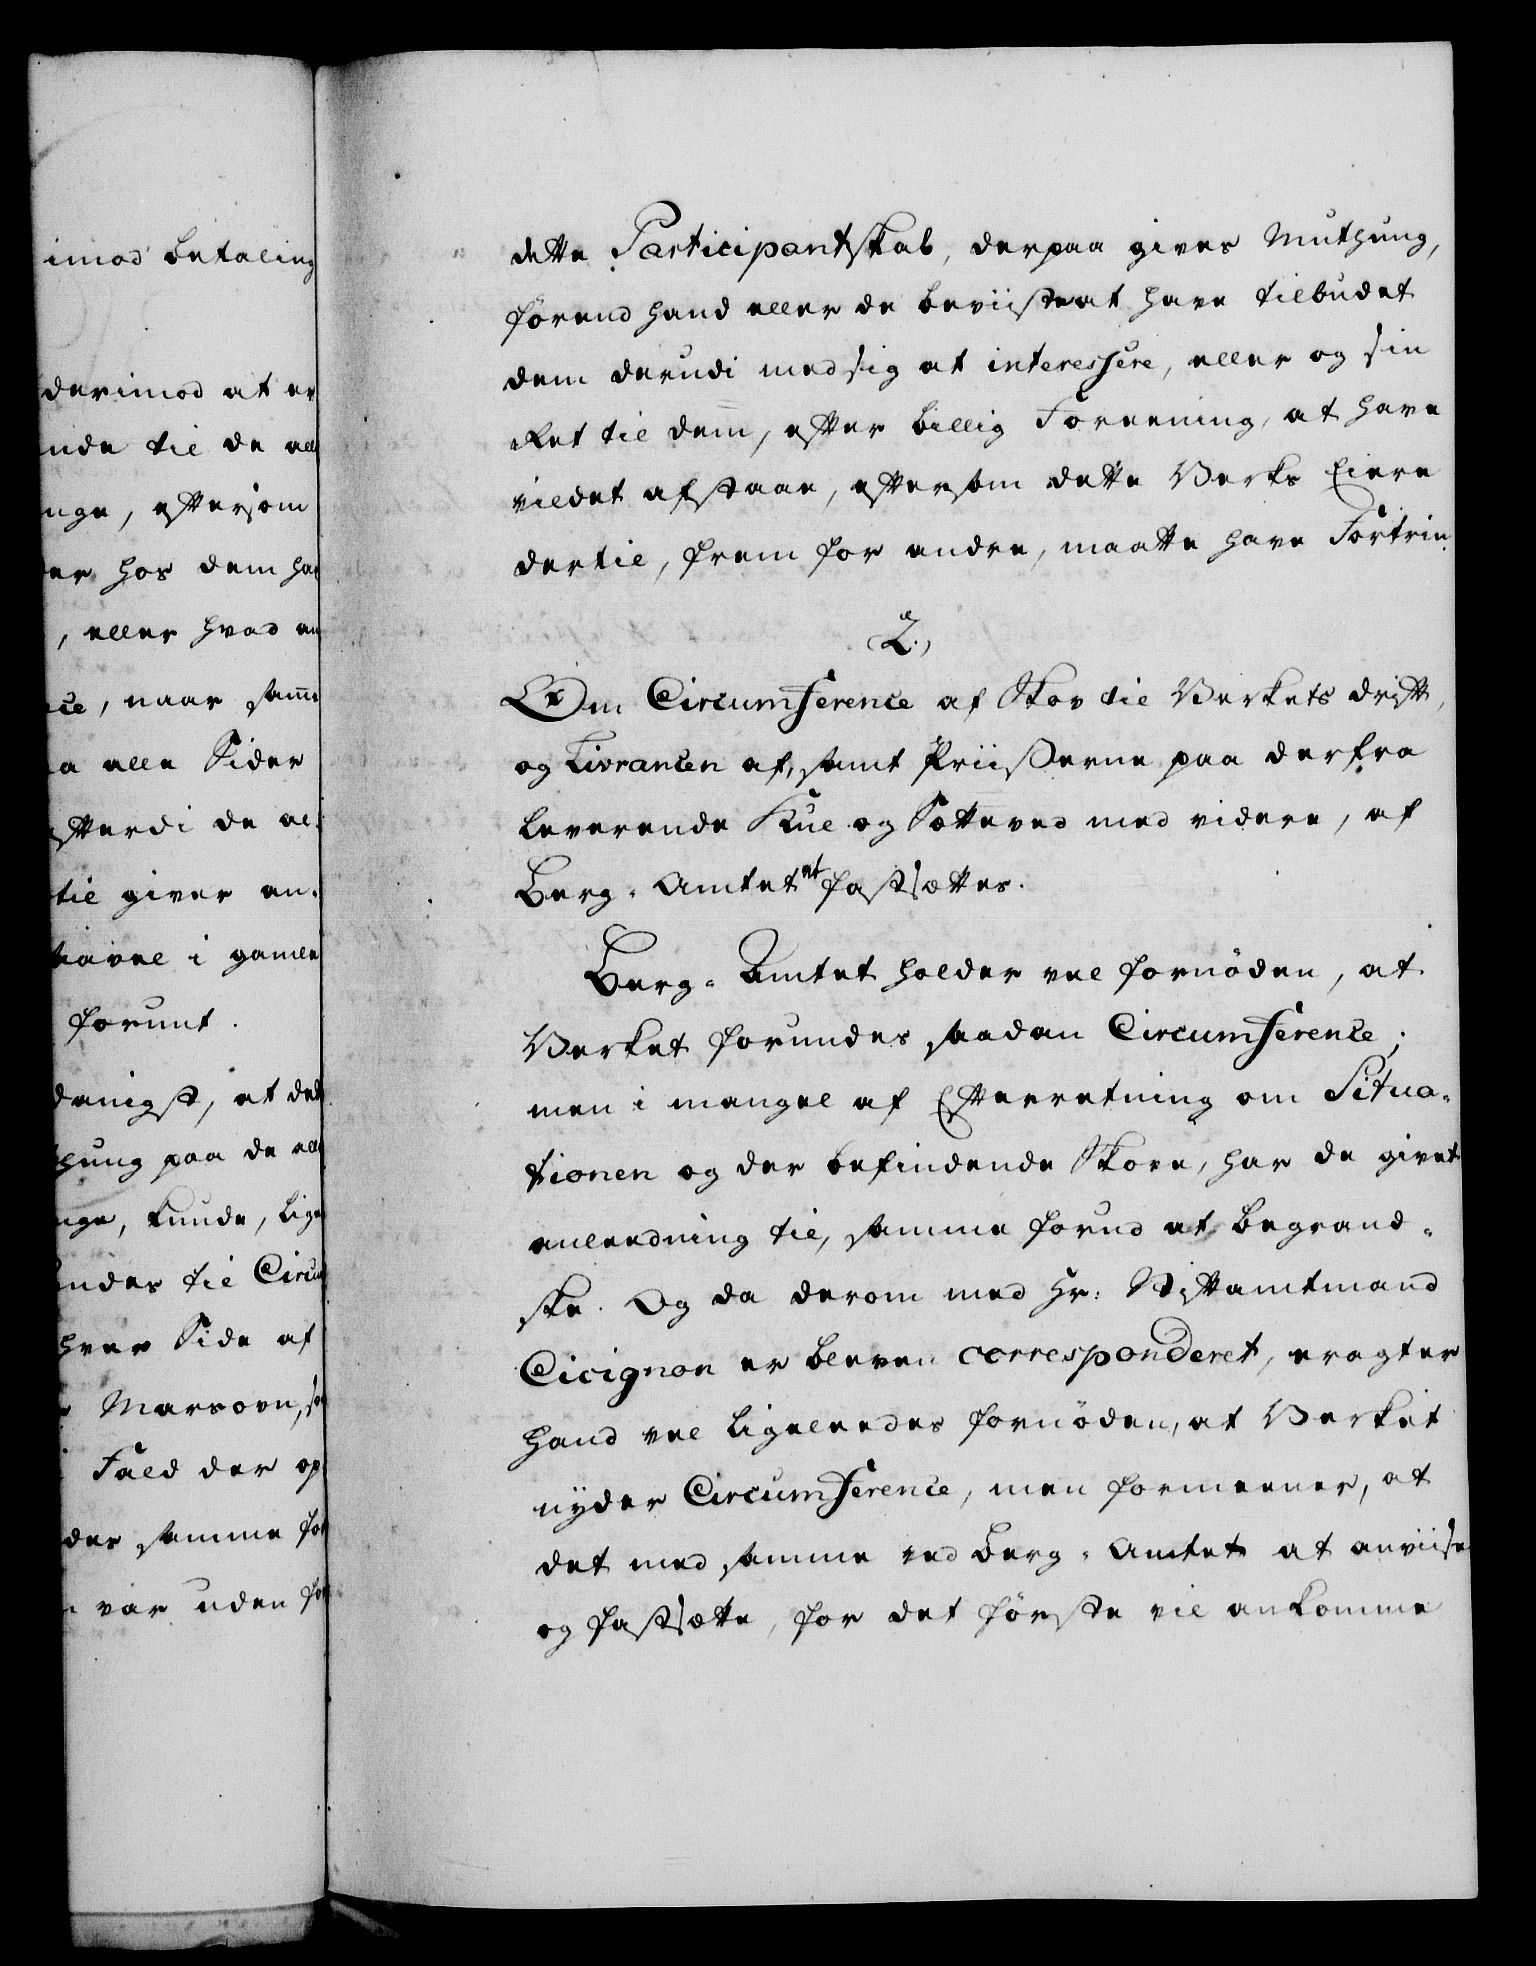 imod betaling
derimod at er
nde til de all
nge, eftersom
er hos dem ha
, eller hvad an
ce, naar samm
a alle Sider
fterdi de al-
til giver an-
i gamle
forunt.
danigst, at det
hung paa de all
nge, kunde, lige
ndes til Circu
hver Side af
Marsovn, so
Fald der op
der samme for
var uden for
dette Participantskab, derpaa gives Muthung,
førend hand eller de beviiste at have tilbudet
dem derudi med sig at interessere, eller og sin
Ret til dem, efter billig Foreening, at have
vildet afstaae, eftersom dette Verks Eiere
dertil, frem for andre, maatte have Fortrin.
2.
Om Circumference af Skov til Verkets drift,
og Livrancen af, samt Priiserne paa derfra
leverende Kul og Sætteved med videre, af
Berg-Amtet at fastsættes.
Berg-Amtet holder vel fornöden, at
Verket forundes saadan Circumference;
men i mangel af Efterretning om Situa-
tionen og der befindende Skove, har de givet
anleedning til, samme forud at begrand-
ske. Og da derom med Hr: Stiftamtmand
Cicignon er bleven correspon̄deret, eragter
hand vel ligeleedes fornöden, at Verket
nyder Circumference, men formeener, at
det med samme ved Berg-Amtet at anviise
og fastsætte, for det første vil ankomme